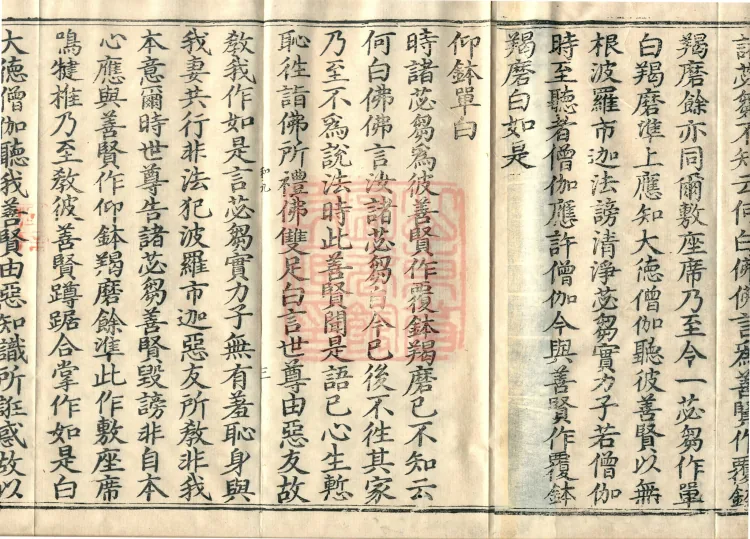 諸苾芻不知云何白佛佛言爲善賢作覆鉢
羯磨餘亦同爾敷座席乃至令一苾芻作單
白羯磨準上應知大德僧伽聽彼善賢以無
根波羅市迦法謗清淨苾芻實力子若僧伽
時至聽者僧伽應許僧伽今與善賢作覆鉢
羯磨白如是
仰鉢單白
時諸苾芻爲彼善賢作覆鉢羯磨已不知云
何白佛佛言汝諸苾芻自今已後不徃其家
乃至不爲說法時此善賢聞是語已心生慙
恥徃詣佛所禮佛雙足白言世尊由惡友故
教我作如是言苾芻實力子無有羞恥身與
我妻共行非法犯波羅市迦惡友所教非我
本意爾時世尊告諸苾芻善賢毀謗非自本
心應與善賢作仰鉢羯磨餘準此作敷座席
鳴犍椎乃至教彼善賢蹲踞合掌作如是白
大德僧伽聽我善賢由惡知識所誑惑故以